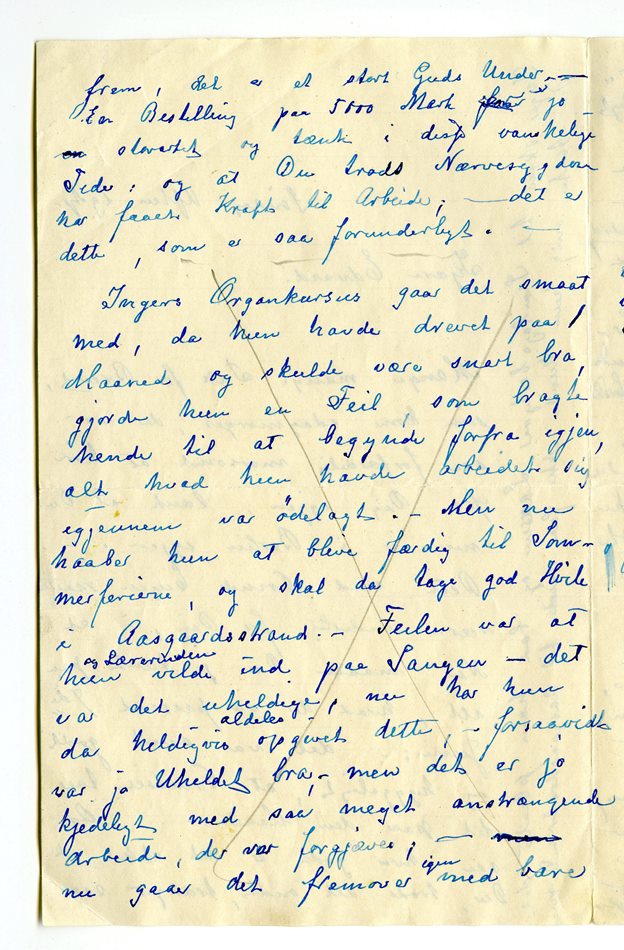 frem, det er et stort Guds Under. —
En Bestilling paa 5000 Mark er jo
storartet og tænk i disse vanskelige
Tider: og at Du trods Nervesygdom
har faaet Kraft til Arbeide; — det er
dette, som er saa forunderligt. —
Ingers Organkursus gaar det smaat
med, da hun havde drevet paa 1
Maaned og skulde være snart bra,
gjorde hun en Feil, som bragte
hende til at begynde forfra igjen,
alt hvad hun havde arbeidet sig
igjennem var ödelagt. — Men nu
haaber hun at bleve færdig til Som-
merferierne, og skal da tage god Hvile
i Aasgaardsstrand. — Feilen var at
hun og Lærerinden vilde ind paa Sangen — det
var det uheldige; nu har hun
da heldigvis aldeles opgivet dette, — forsaavidt
var jo Uheldet bra, — men det er jo
kjedeligt med saa meget anstrængende
Arbeide, der var forgjæves; — men
nu gaar det fremover igen med bare